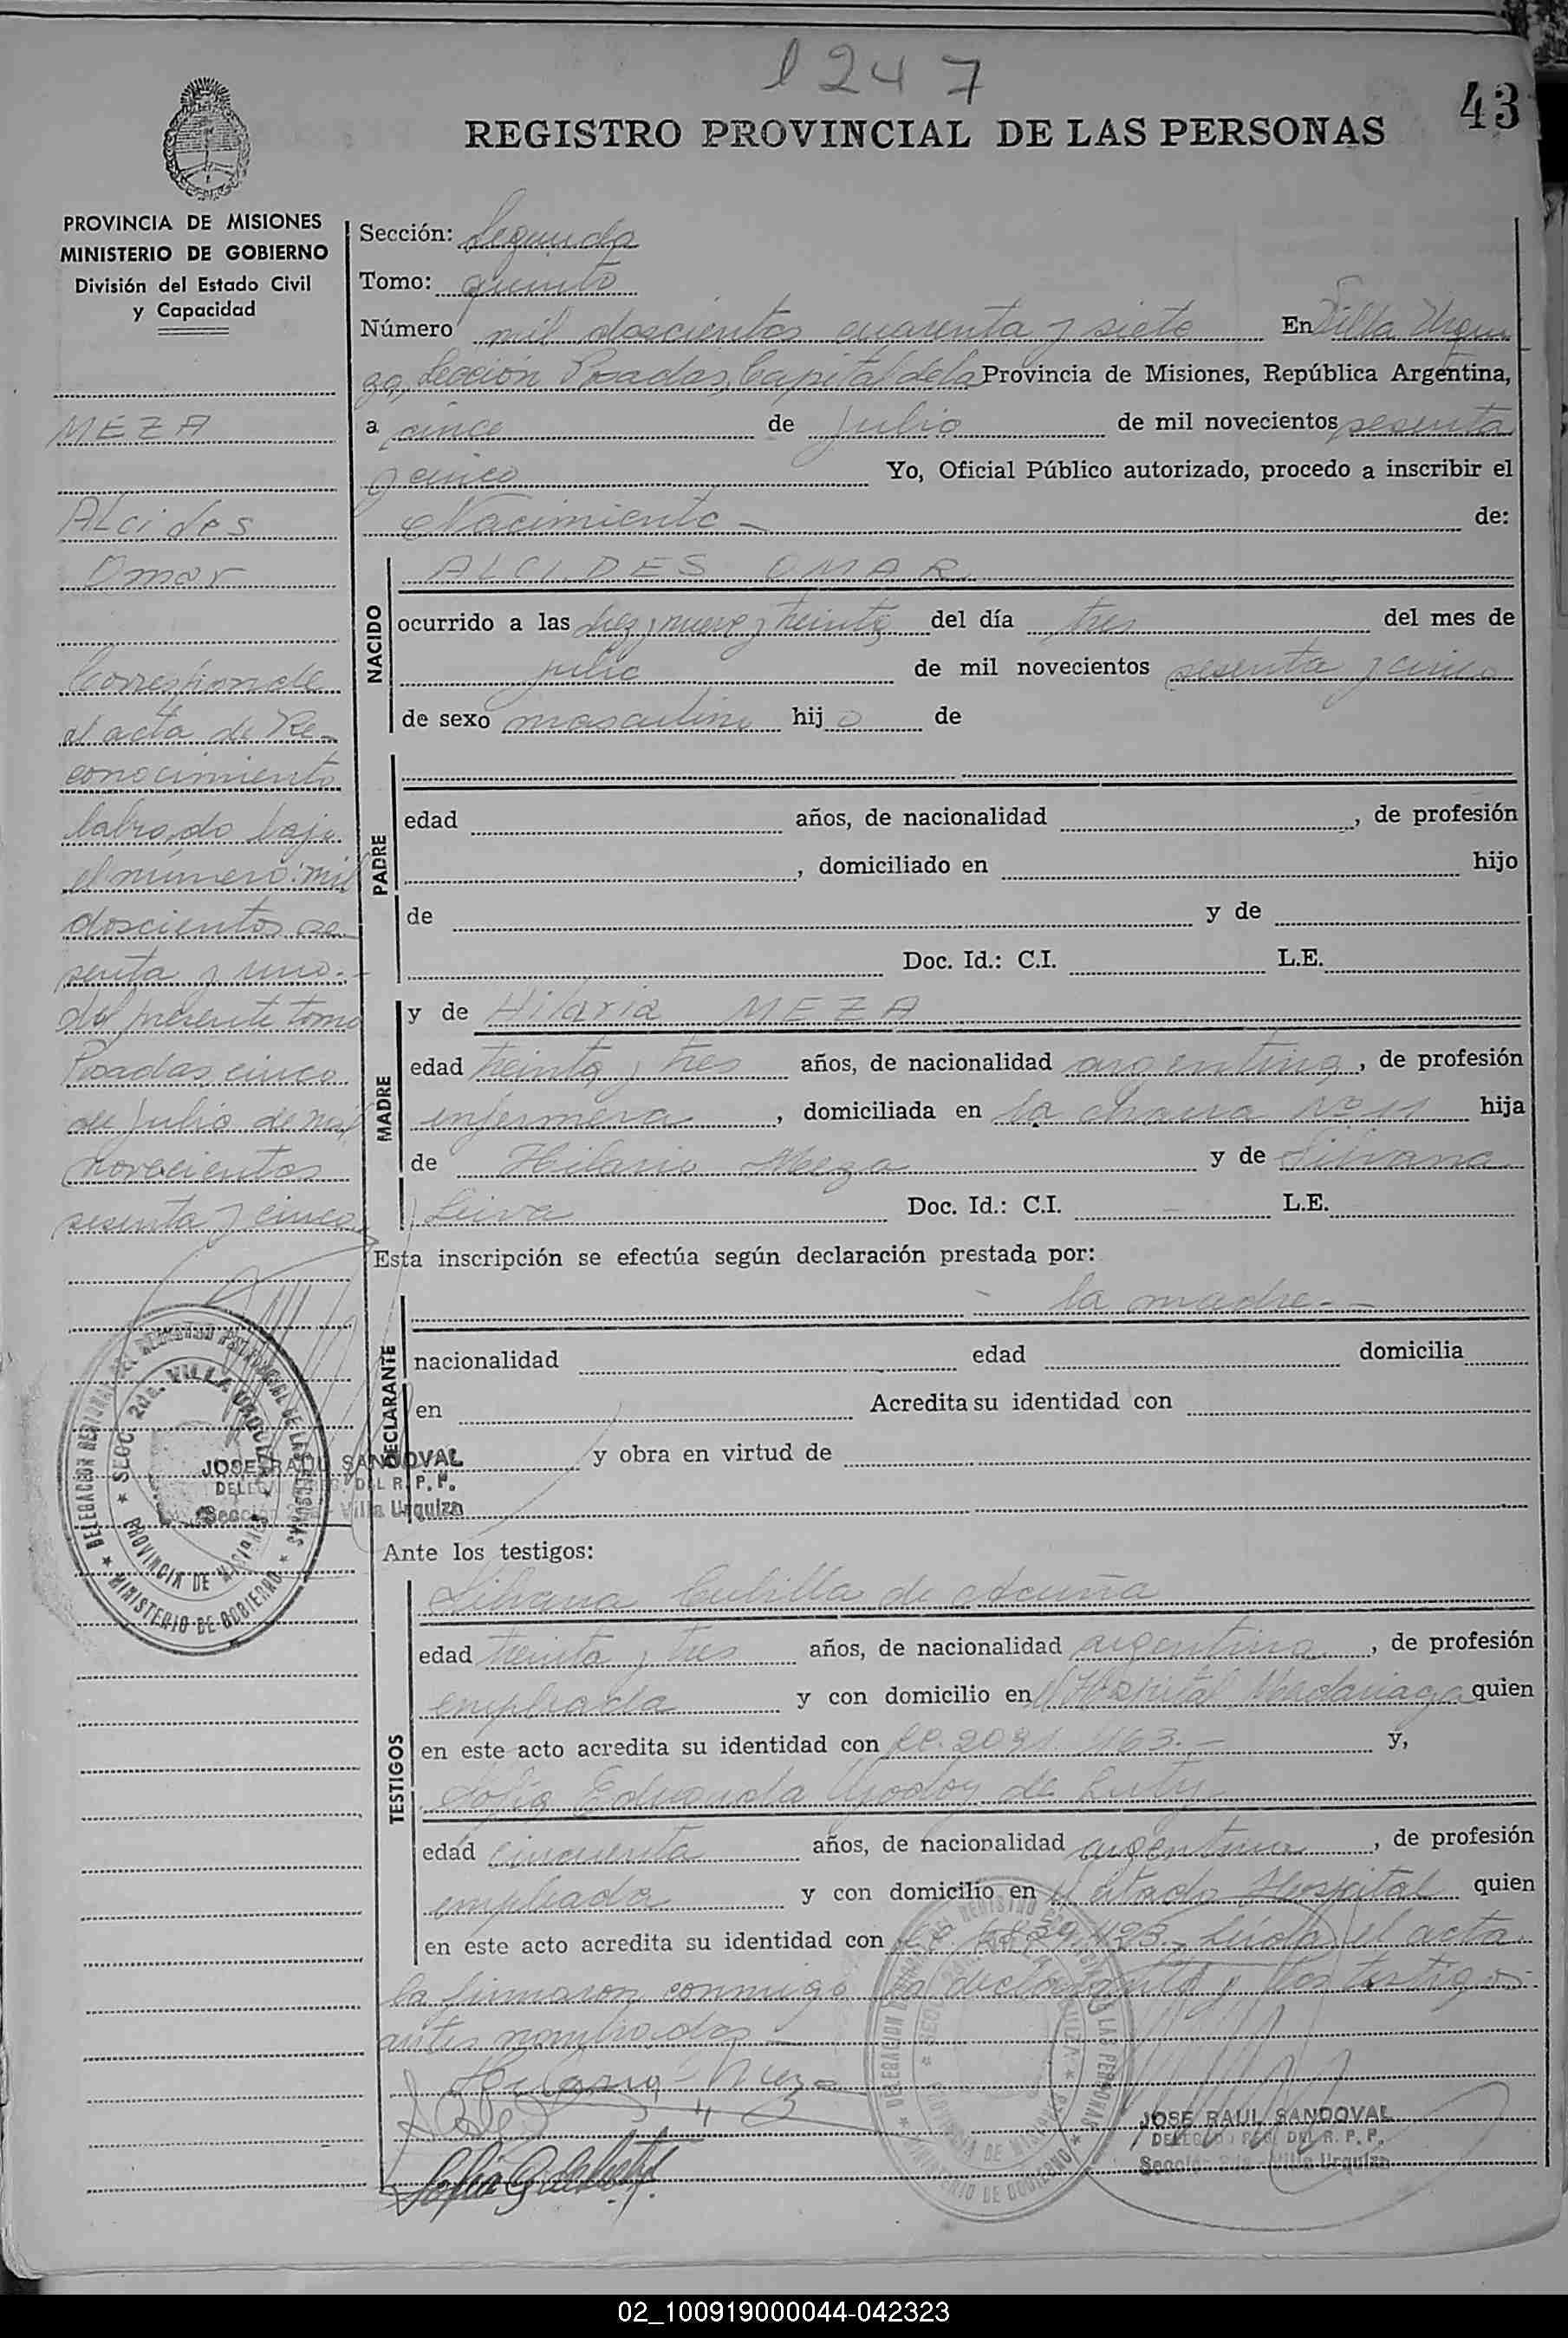 1247
43
REGISTRO PROVINCIAL DE LAS PERSONAS
PROVINCIA DE MISIONES
MINISTERIO DE GOBIERNO
División del Estado Civil
y Capacidad
MEZA
ALcides
Omar
Corresponde
al acta de Re-
conocimiento
labrado bajo
el número: mil
doscientos se-
senta y uno.-
del presente tomo
Posadas, cinco
de Julio de mil
novecientos
sesenta y cinco
Sección: Segunda
Tomo: quinto
Número mil doscientos cuarenta y siete En Villa Urqui
za, Sección Posadas, Capital de la Provincia de Misiones, República Argentina,
a cinco de Julio de mil novecientos sesenta
y cinco Yo, Oficial Público autorizado, procedo a inscribir el
Nacimiento - de:
NACIDO
ALCIDES OMAR
ocurrido a las diez y nueve y treinta del día tres del mes de
julio de mil novecientos sesenta y cinco
de sexo masculino hijo de
PADRE
edad años, de nacionalidad , de profesión
, domiciliado en hijo
de y de
Doc. Id.: C.I. L.E.
MADRE
y de Hilaria MEZA
edad treinta y tres años, de nacionalidad argentina, de profesión
enfermera, domiciliada en la chacra Nº 11 hija
de Hilario Meza y de Silvana
Leiva Doc. Id.: C.I. - L.E.
Esta inscripción se efectúa según declaración prestada por:
DECLARANTE
- la madre.- -
nacionalidad edad domicilia
en Acredita su identidad con
y obra en virtud de
DELEGACION REGIONAL DEL REGISTRO PROVINCIAL DE LAS PERSONAS
SECC. 2da. VILLA URQUIZA
PROVINCIA DE MISIONES
MINISTERIO DE GOBIERNO
JOSE RAUL SANDOVAL
DELEGADO REG. DEL R. P. P.
Sección 2da - Villa Urquiza
Ante los testigos:
TESTIGOS
Silvana de Acuña
edad treinta y tres años, de nacionalidad argentina, de profesión
empleada y con domicilio en el Hospital Madariaga quien
en este acto acredita su identidad con 163.- y,
Sofia Eduarda Godoy de
edad cincuenta años, de nacionalidad argentina, de profesión
empleada y con domicilio en el citado Hospital quien
en este acto acredita su identidad con Leída el acta
la firmaron conmigo la declarante y los testigos
antes nombrados
Hilaria Meza
DELEGACION REGIONAL DEL REGISTRO PROVINCIAL DE LAS PERSONAS
PROVINCIA DE MISIONES
MINISTERIO DE GOBIERNO
JOSE RAUL SANDOVAL
DELEGADO REG. DEL R. P. P.
Sección 2da - Villa Urquiza
02_100919000044-042323